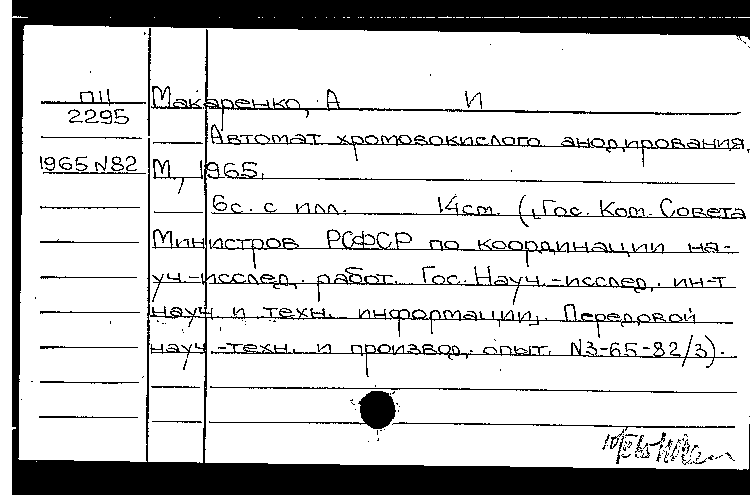 П11
2295
1965 N82
Макаренко, А И
Автомат хромовокислого анодирования,
М, 1965.
6с. с илл. 14см. (,Гос. Ком. Совета
Министров РСФСР по координации на-
уч.-исслед. работ. Гос. Науч.-исслед. ин-т
науч. и техн. информации, Передовой
науч.-техн. и производ. опыт. N3-65-82/3).